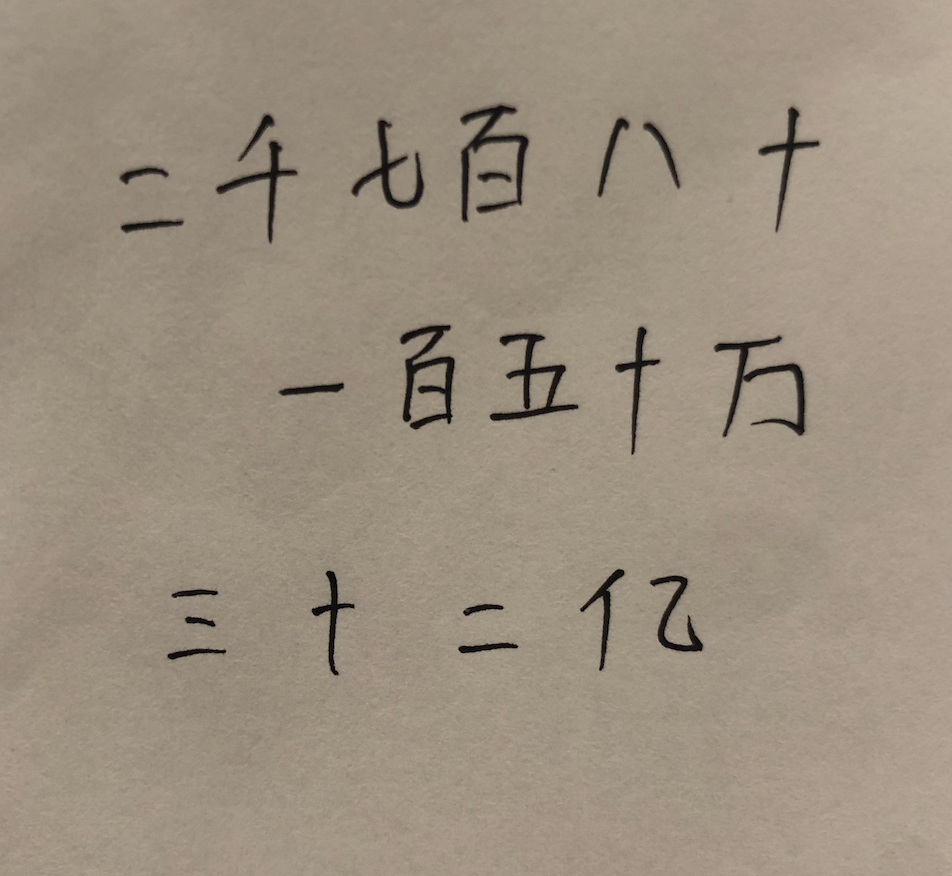 二千七百八十
一百五十万
三十二亿